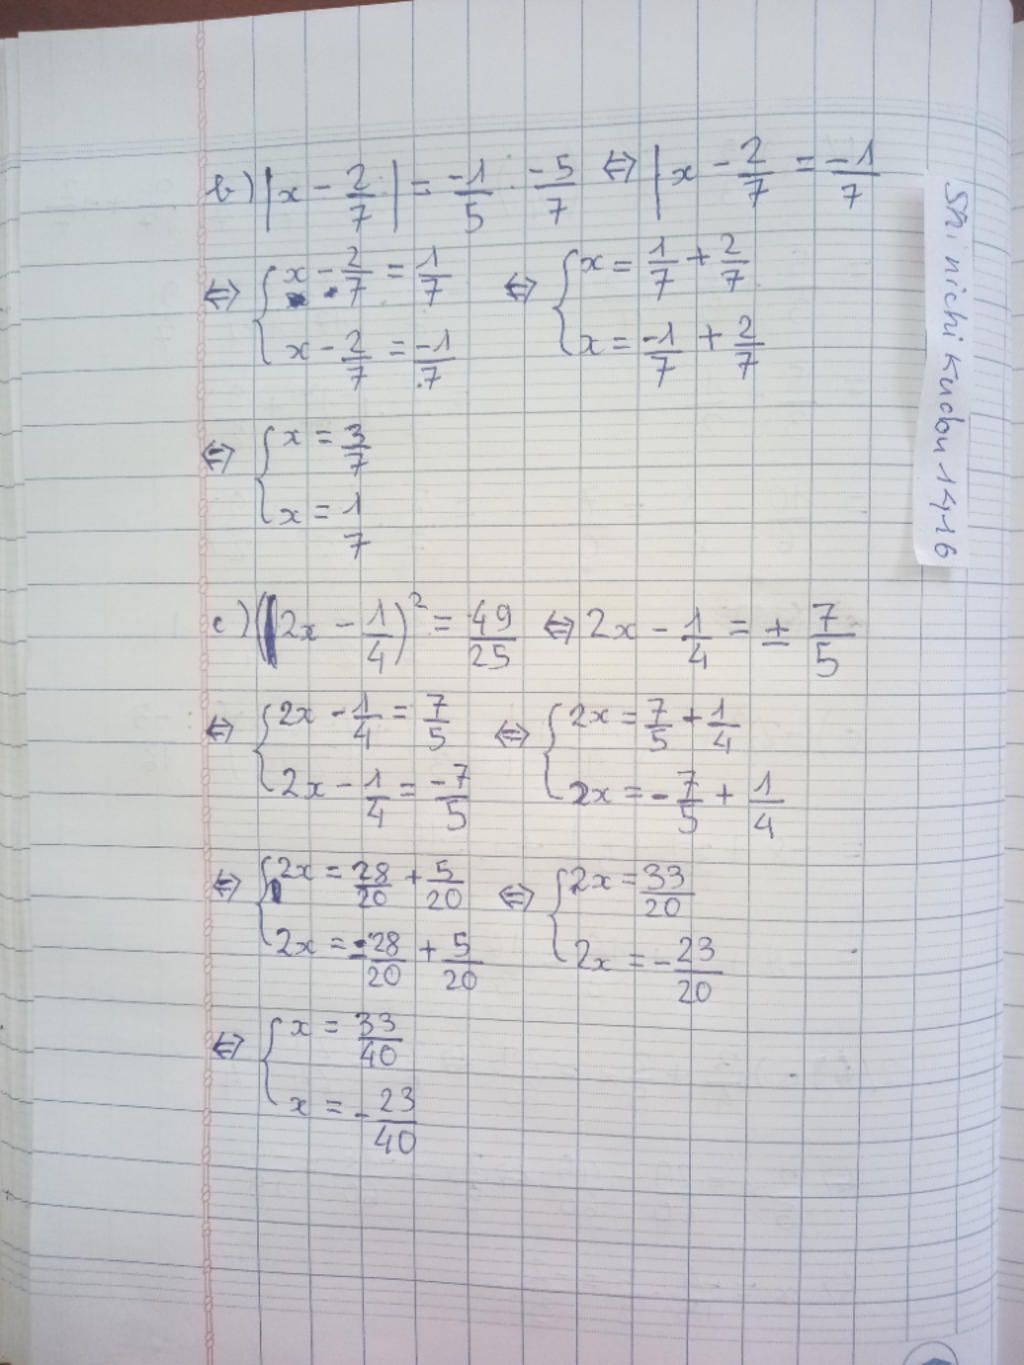 b) |x - 2/7| = -1/5 . -5/7 ⇔ |x - 2/7 = -1/7
⇔ { x - 2/7 = 1/7 ⇔ { x = 1/7 + 2/7
x - 2/7 = -1/7 x = -1/7 + 2/7
⇔ { x = 3/7
x = 1 7
c) (2x - 1/4)² = 49/25 ⇔ 2x - 1/4 = ± 7/5
⇔ { 2x - 1/4 = 7/5 ⇔ { 2x = 7/5 + 1/4
2x - 1/4 = -7/5 2x = -7/5 + 1/4
⇔ { 2x = 28/20 + 5/20 ⇔ { 2x = 33/20
2x = -28/20 + 5/20 2x = -23/20
⇔ { x = 33/40
x = -23/40
Shinichi Kudou 1416